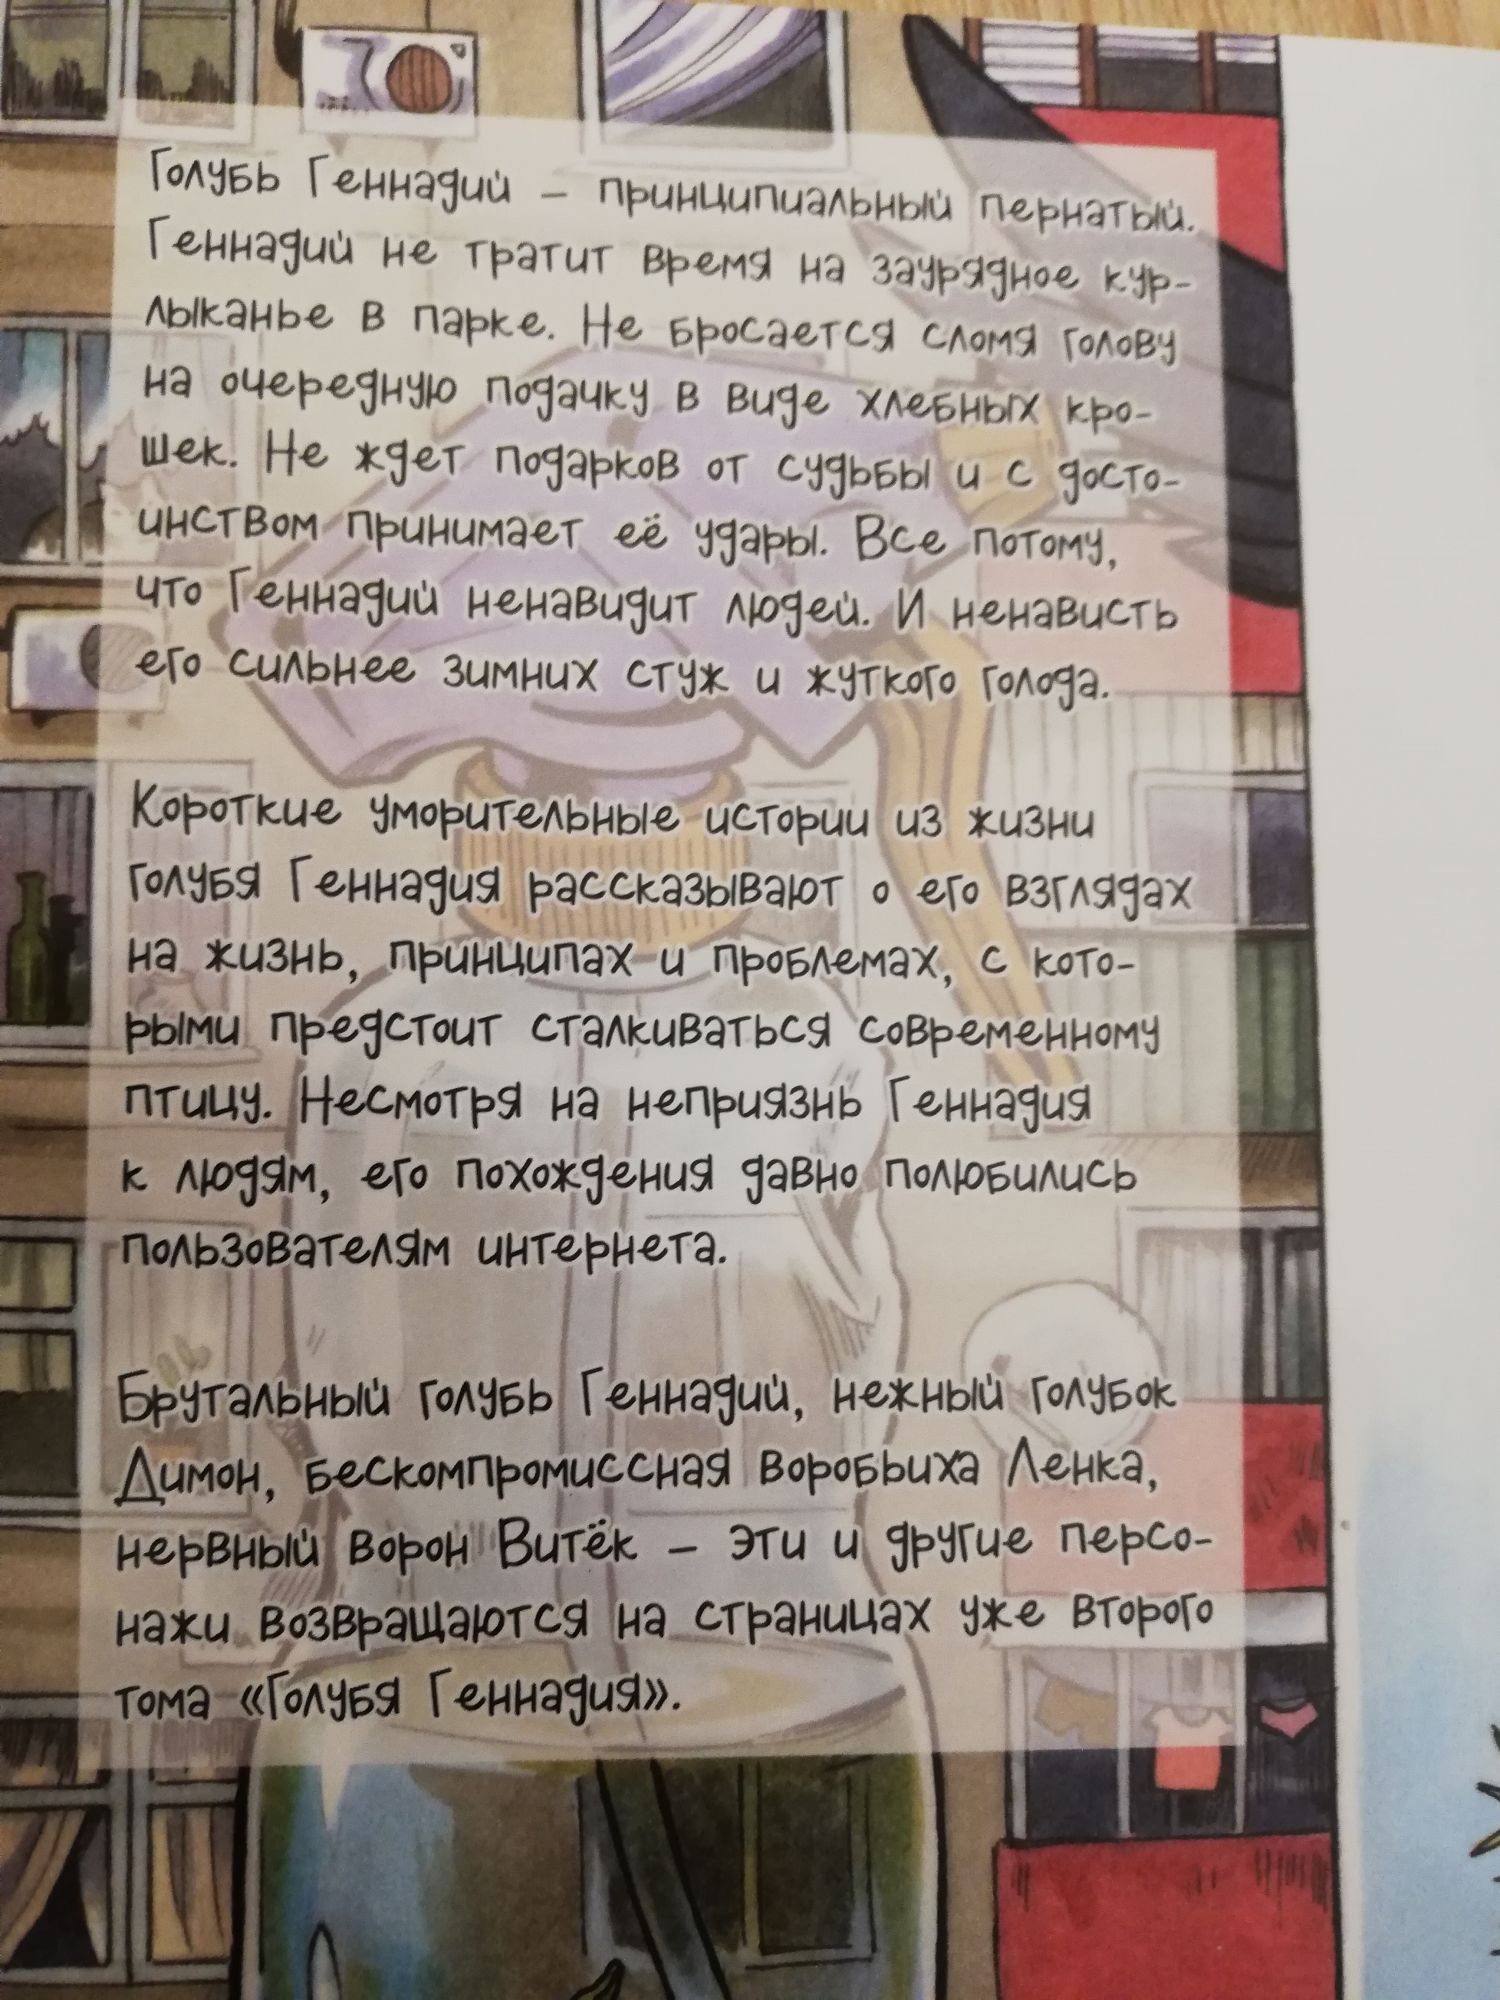 Голубь Геннадий – принципиальный пернатый.
Геннадий не тратит время на заурядное кур-
лыканье в парке. Не бросается сломя голову
на очередную подачку в виде хлебных кро-
шек. Не ждет подарков от судьбы и с досто-
инством принимает её удары. Все потому,
что Геннадий ненавидит людей. И ненависть
его сильнее зимних стуж и жуткого голода.
Короткие уморительные истории из жизни
голубя Геннадия рассказывают о его взглядах
на жизнь, принципах и проблемах, с кото-
рыми предстоит сталкиваться современному
птицу. Несмотря на неприязнь Геннадия
к людям, его похождения давно полюбились
пользователям интернета.
Брутальный голубь Геннадий, нежный голубок
Димон, бескомпромиссная воробьиха Ленка,
нервный ворон Витёк – эти и другие персо-
нажи возвращаются на страницах уже второго
тома «Голубя Геннадия».